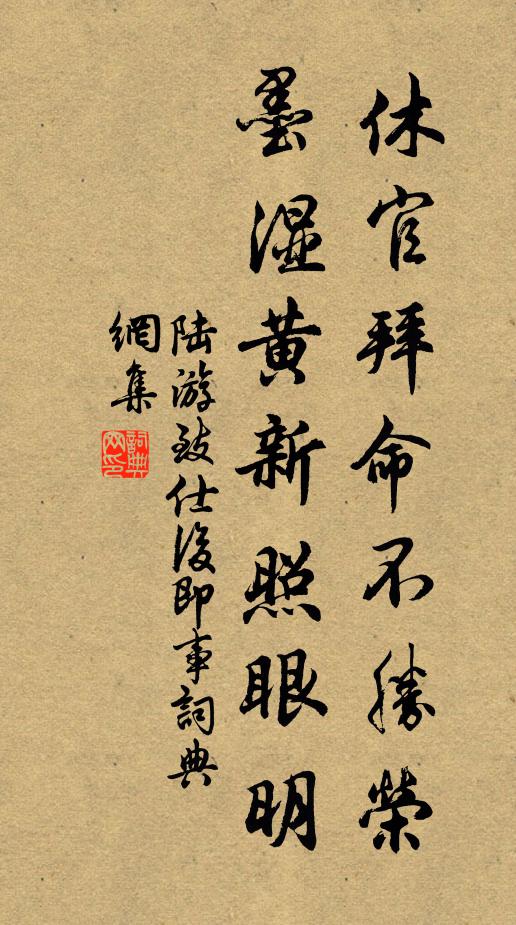 休官拜命不勝榮
墨濕黃新照眼明
陆游致仕後即事詞典
網集
詞典
网印